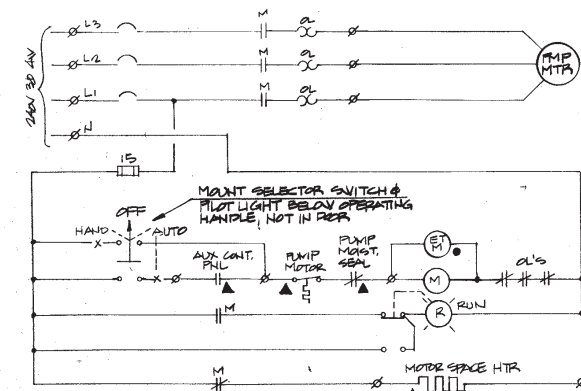 M OL
L3
M OL
L2
PMP
MTR
240V 3Ø 4W
M OL
L1
N
15
MOUNT SELECTOR SWITCH &
PILOT LIGHT BELOW OPERATING
HANDLE, NOT IN DOOR
OFF
HAND AUTO
X
X
AUX CONT.
PNL
PUMP
MOTOR
PUMP
MOIST.
SEAL
ET
M
M
OL'S
M
R
RUN
M
MOTOR SPACE HTR